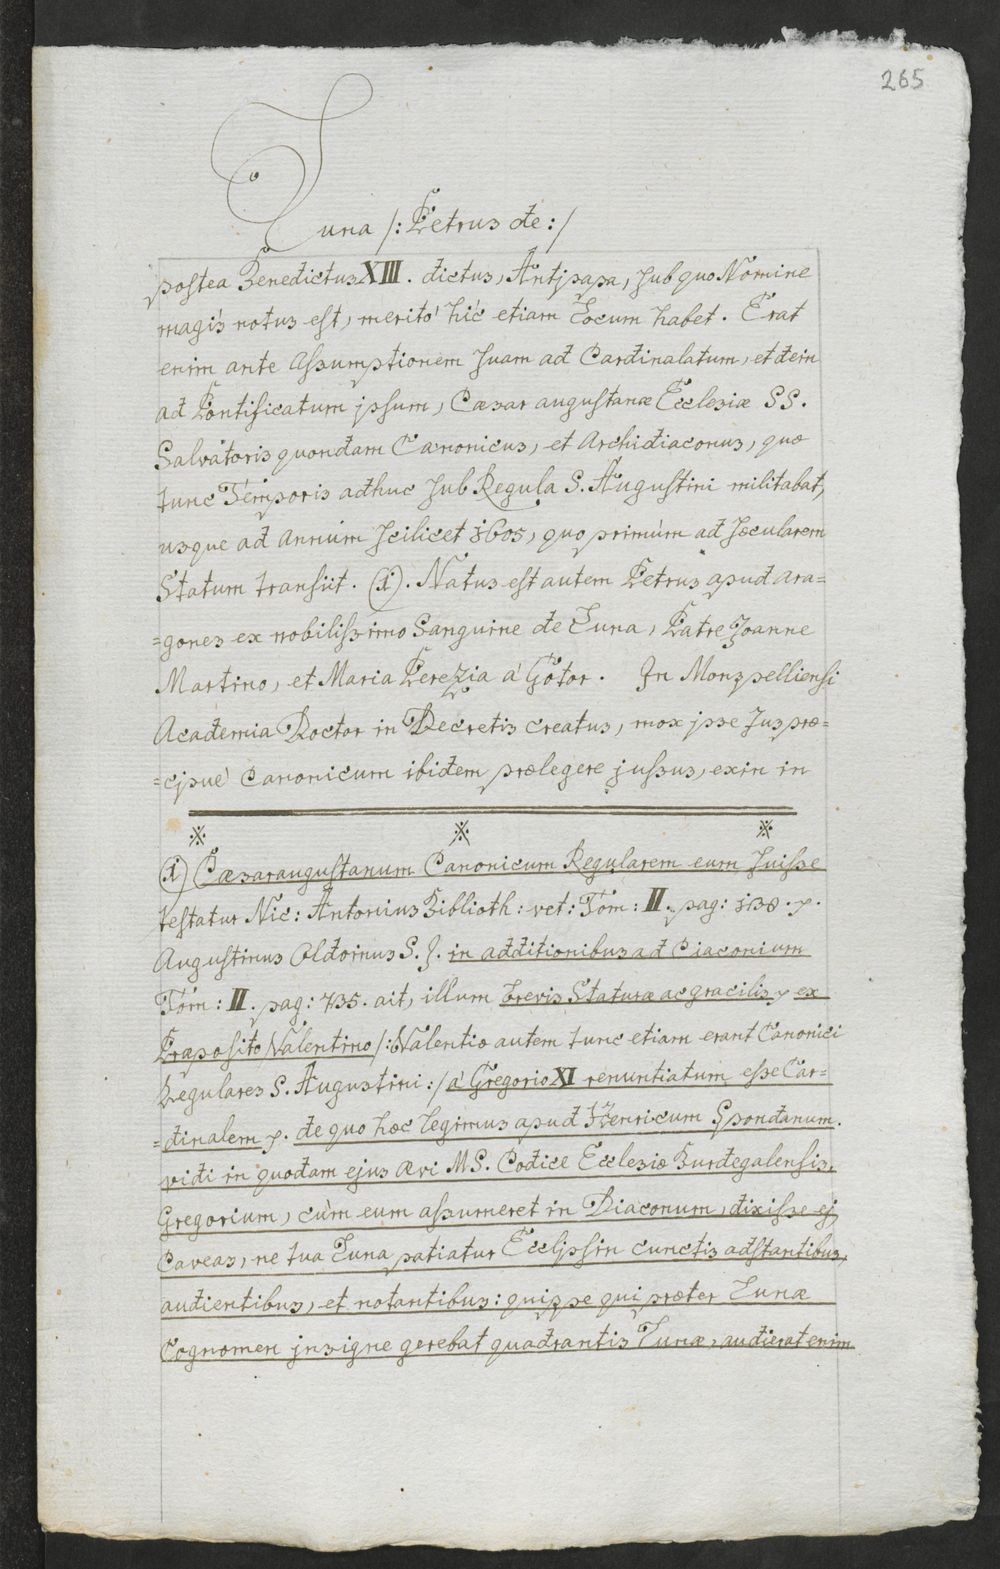 265
Luna /: Petrus de :/
postea Benedictus XIII. dictus, Antipapa, sub quo Nomine
magis notus est, meritò hìc etiam Locum habet. Erat
enim ante Assumptionem suam ad Cardinalatum, et dein
ad Pontificatum jpsum, Cæsar augustanæ Ecclesiæ SS.
Salvatoris quondam Canonicus, et Archidiaconus, quæ
tunc Temporis adhuc sub Regula S. Augustini militabat,
usque ad Annum scilicet 1605, quo primùm ad sæcularem
Statum transiit. (1). Natus est autem Petrus apud Ara=
=gones ex nobilissimo Sanguine de Luna, Patre Joanne
Martino, et Maria Perezia à Gotor. In Monspelliensi
Academia Doctor in Decretis creatus, mox jpse Jus præ=
=cjpuè Canonicum ibidem prælegere jussus, exin in
(1) Cæsaraugustanum Canonicum Regularem eum fuisse
testatur Nic: Antonius Biblioth: vet: Tom: II. pag: 138. p.
Augustinus Oldoinus S. J. in additionibus ad Ciaconium
Tom: II. pag: 735. ait, illum brevis Staturæ ac gracilis p ex
Præposito Valentino /: Valentiæ autem tunc etiam erant Canonici
Regulares S. Augustini :/ à Gregorio XI renuntiatum esse Car=
=dinalem p. de quo hæc legimus apud Henricum Spondanum.
vidi in quodam ejus ævi MS. Codice Ecclesiæ Burdegalensis,
Gregorium, cùm eum assumeret in Diaconum, dixisse ej
Caveas, ne tua Luna patiatur Eccljpsin cunctis adstantibus,
audientibus, et notantibus: quippe qui præter Lunæ
Cognomen jnsigne gerebat quadrantis Lunæ, audierat enim